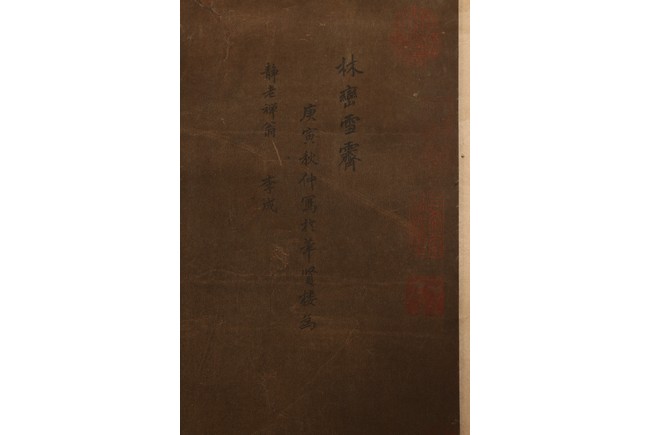 林巒雪霽
庚寅秋仲寫於華胥樓為
靜老禪翁 李成